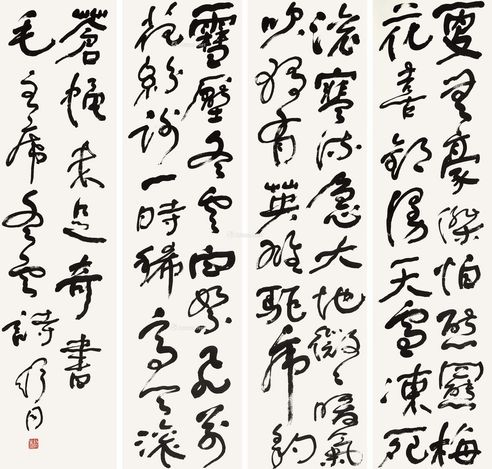 更無豪傑怕熊羆梅
花喜歡漫天雪凍死
滾寒流急大地微々暖氣
吹獨有英雄驅虎豹
雪壓冬雲白絮飛萬
花紛謝一時稀高天滾
蒼蠅未足奇書
毛主席冬雲詩 舒同